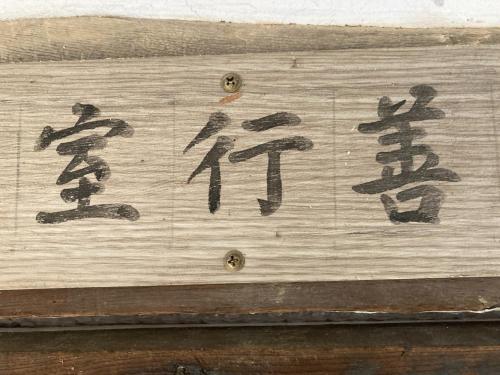 善行室